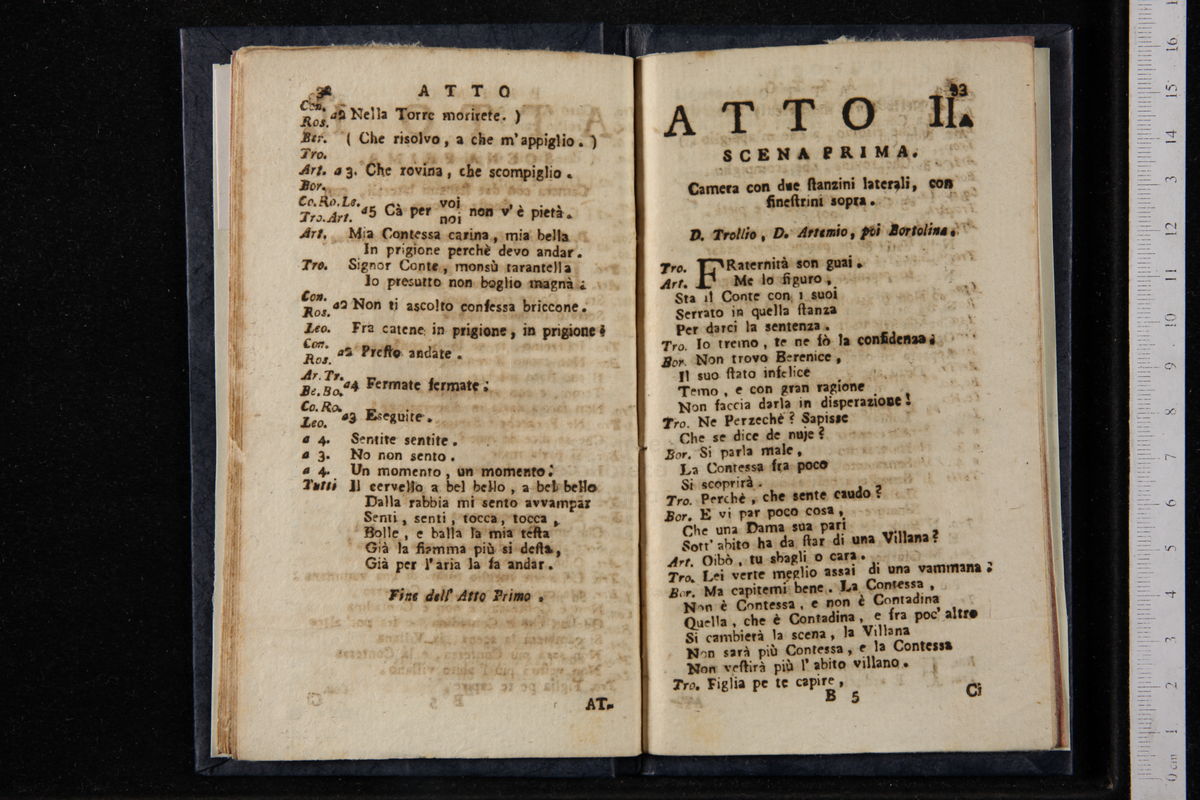 32 ATTO
Con.
Ros. a2 Nella Torre morirete. )
Ber. ( Che risolvo, a che m'appiglio. )
Tro.
Art. a 3. Che rovina, che scompiglio.
Bor.
Co.Ro.Le.
Tro.Art. a5 Cà per voi noi non v'è pietà.
Art. Mia Contessa carina, mia bella
In prigione perchè devo andar.
Tro. Signor Conte, monsù tarantella
Io presutto non boglio magnà.
Con.
Ros. a2 Non ti ascolto confessa briccone.
Leo. Fra catene in prigione, in prigione:
Con.
Ros. a2 Presto andate.
Ar.Tr.
Be.Bo. a4 Fermate fermate:
Co.Ro.
Leo. a3 Eseguite.
a 4. Sentite sentite.
a 3. No non sento.
a 4. Un momento, un momento:
Tutti Il cervello a bel bello, a bel bello
Dalla rabbia mi sento avvampar
Senti, senti, tocca, tocca,
Bolle, e balla la mia testa
Già la fiamma più si desta,
Già per l'aria la fa andar.
Fine dell' Atto Primo.
AT-
33
ATTO II.
SCENA PRIMA.
Camera con due stanzini laterali, con
finestrini sopra.
D. Trollio, D. Artemio, poi Bortolina.
Tro. FRaternità son guai.
Art. Me lo figuro,
Sta il Conte con i suoi
Serrato in quella stanza
Per darci la sentenza.
Tro. Io tremo, te ne fò la confidenza:
Bor. Non trovo Berenice,
Il suo stato infelice
Temo, e con gran ragione
Non faccia darla in disperazione!
Tro. Ne Perzechè? Sapisse
Che se dice de nuje?
Bor. Si parla male,
La Contessa fra poco
Si scoprirà.
Tro. Perchè, che sente caudo?
Bor. E vi par poco cosa,
Che una Dama sua pari
Sott' abito ha da star di una Villana?
Art. Oibò, tu sbagli o cara.
Tro. Lei verte meglio assai di una vammana:
Bor. Ma capitemi bene. La Contessa,
Non è Contessa, e non è Contadina
Quella, che è Contadina, e fra poc' altro
Si cambierà la scena, la Villana
Non sarà più Contessa, e la Contessa
Non vestirà più l'abito villano.
Tro. Figlia pe te capire,
B 5 Ci
0 cm 1 2 3 4 5 6 7 8 9 10 11 12 13 14 15 16